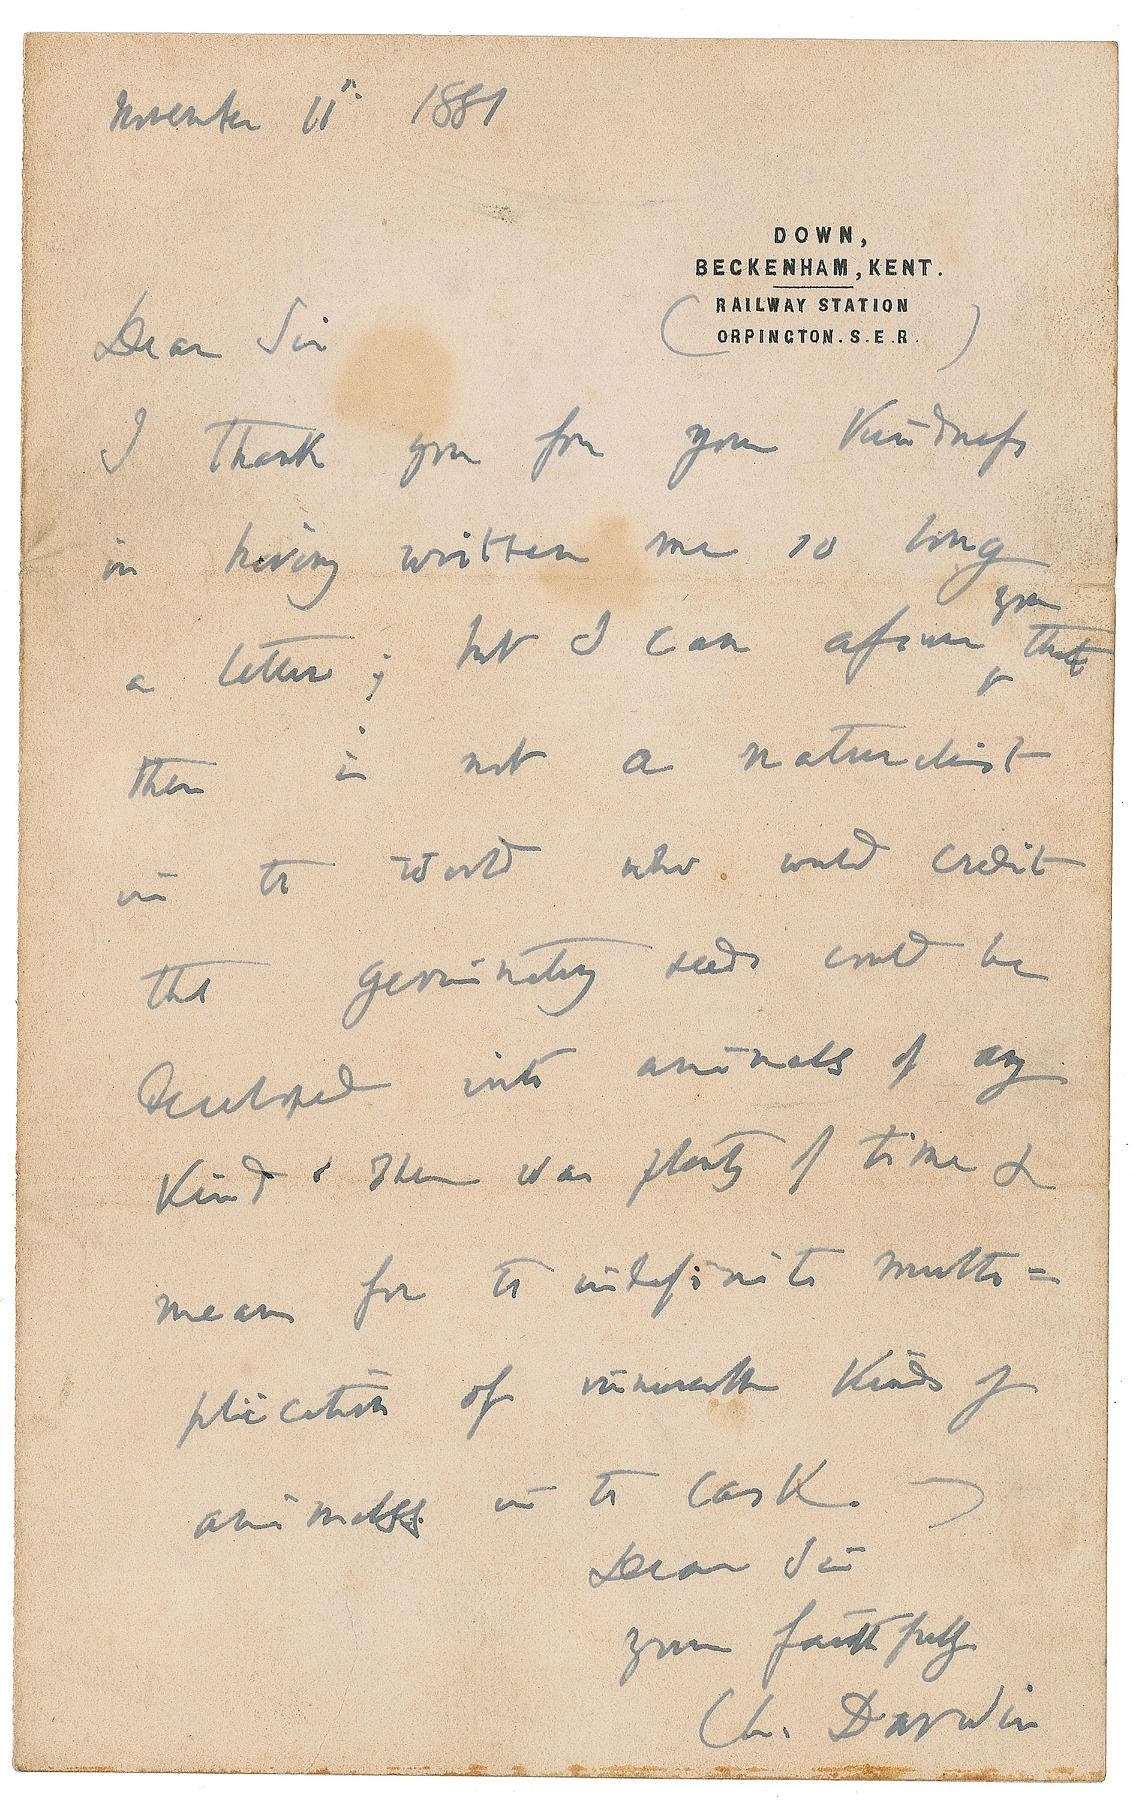 November 11th 1881
DOWN,
BECKENHAM, KENT.
RAILWAY STATION
ORPINGTON. S.E.R.
Dear Sir
I thank you for your kindness
in having written me so long
a letter; but I can assure you that
there is not a naturalist
in the world who would credit
that germinating seeds could be
developed into animals of any
kind & there was plenty of time &
means for the indefinite multi=
plication of minute kinds of
animals in the cask. —
Dear Sir
yours faithfully
Ch. Darwin